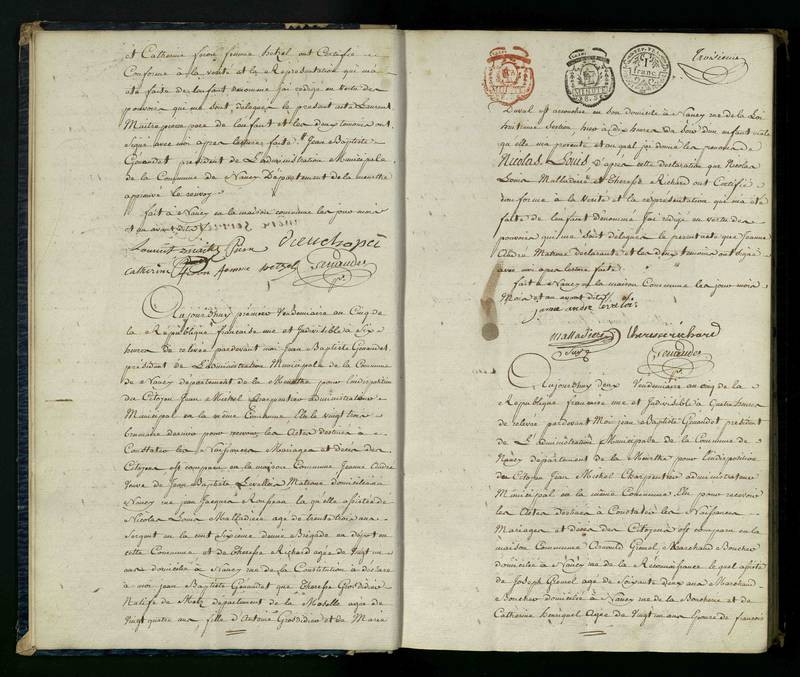 et Catherine femme hetzel ont Certifié
Conforme à la verité et la Représentation qui m'a
été faite de l'enfant denommé j'ai redigé en vertu des
pouvoirs qui me sont délégués le present acte Laurent
Maitre pere de l'enfant et les deux temoins ont
signé avec moi apres lecture faite Jean Baptiste
Géraudet president de L'administration Municipale
de la Commune de Nancy Département de la meurthe
approuvé le renvoy
fait à Nancy en la maison commune les jour mois
et an avant dits
Laurent
Catherine femme hetzel
Aujourd'huy premier Vendemiaire an Cinq de
la République française une et Indivisible à Six
heures de relevée pardevant moi Jean Baptiste Géraudet
président de L'administration Municipale de la Commune
de Nancy département de la Meurthe pour l'indisposition
du Citoyen Jean Michel Charpentier administrateur
Municipal en la même Commune élu le vingt trois
brumaire dernier pour recevoir les Actes destinés à
Constater les Naissances Mariages et décès des
Citoyens est comparu en la maison Commune Jeanne Andre
veuve de Jean Baptiste Levallois Matrone domiciliée à
Nancy rue Jean Jacques Rousseau laquelle assistée de
Nicolas Louis Malladiere agé de trente trois ans
Sergent en la cent Sixieme demie Brigade en dépôt en
cette Commune et de Therese Richard agée de Vingt un
ans domiciliée à Nancy rue de la Constitution a déclaré
à moi Jean Baptiste Géraudet que Therese Grosdidier
Native de Metz département de la Moselle agée de
Vingt quatre ans fille d'Antoine Grosdidier et de Marie
Troisieme
MINUTE
1 franc
MINUTE
Duval est accouchée en son domicile à Nancy rue de la Loi
huitieme Section hier à dix heures du Soir d'un enfant mâle
qu'elle m'a presenté et auquel j'ai donné les prenoms de
Nicolas Louis D'apres cette declaration que Nicolas
Louis Malladiere et Therese Richard ont Certifié
Conforme à la Verité et la représentation qui m'a été
faite de l'enfant denommé J'ai redigé en vertu des
pouvoirs qui me sont délégués le present acte que Jeanne
Andre Matrone declarante et les deux temoins ont signé
avec moi apres lecture faite
fait à Nancy en la maison Commune les jour mois
Mois et an avant dits
janne andre levalois
malladiere therese richard
Aujourd'huy deux Vendemiaire an cinq de la
République francaise une et Indivisible à Quatre heures
de relevée pardevant Moi jean Baptiste Géraudet president
de L'administration Municipale de la Commune de
Nancy département de la Meurthe pour l'indisposition
du Citoyen Jean Michel Charpentier administrateur
Municipal en la même Commune élu pour recevoir
les Actes destinés à Constater les Naissances
Mariages et décès des Citoyens est comparu en la
maison Commune Marchand Boucher
domicilié à Nancy rue de la Reconnaissance lequel assisté
de Joseph agé de Soixante deux ans Marchand
Boucher domicilié à Nancy rue de la Boucherie et de
Catherine Agée de Vingt un ans épouse de françois